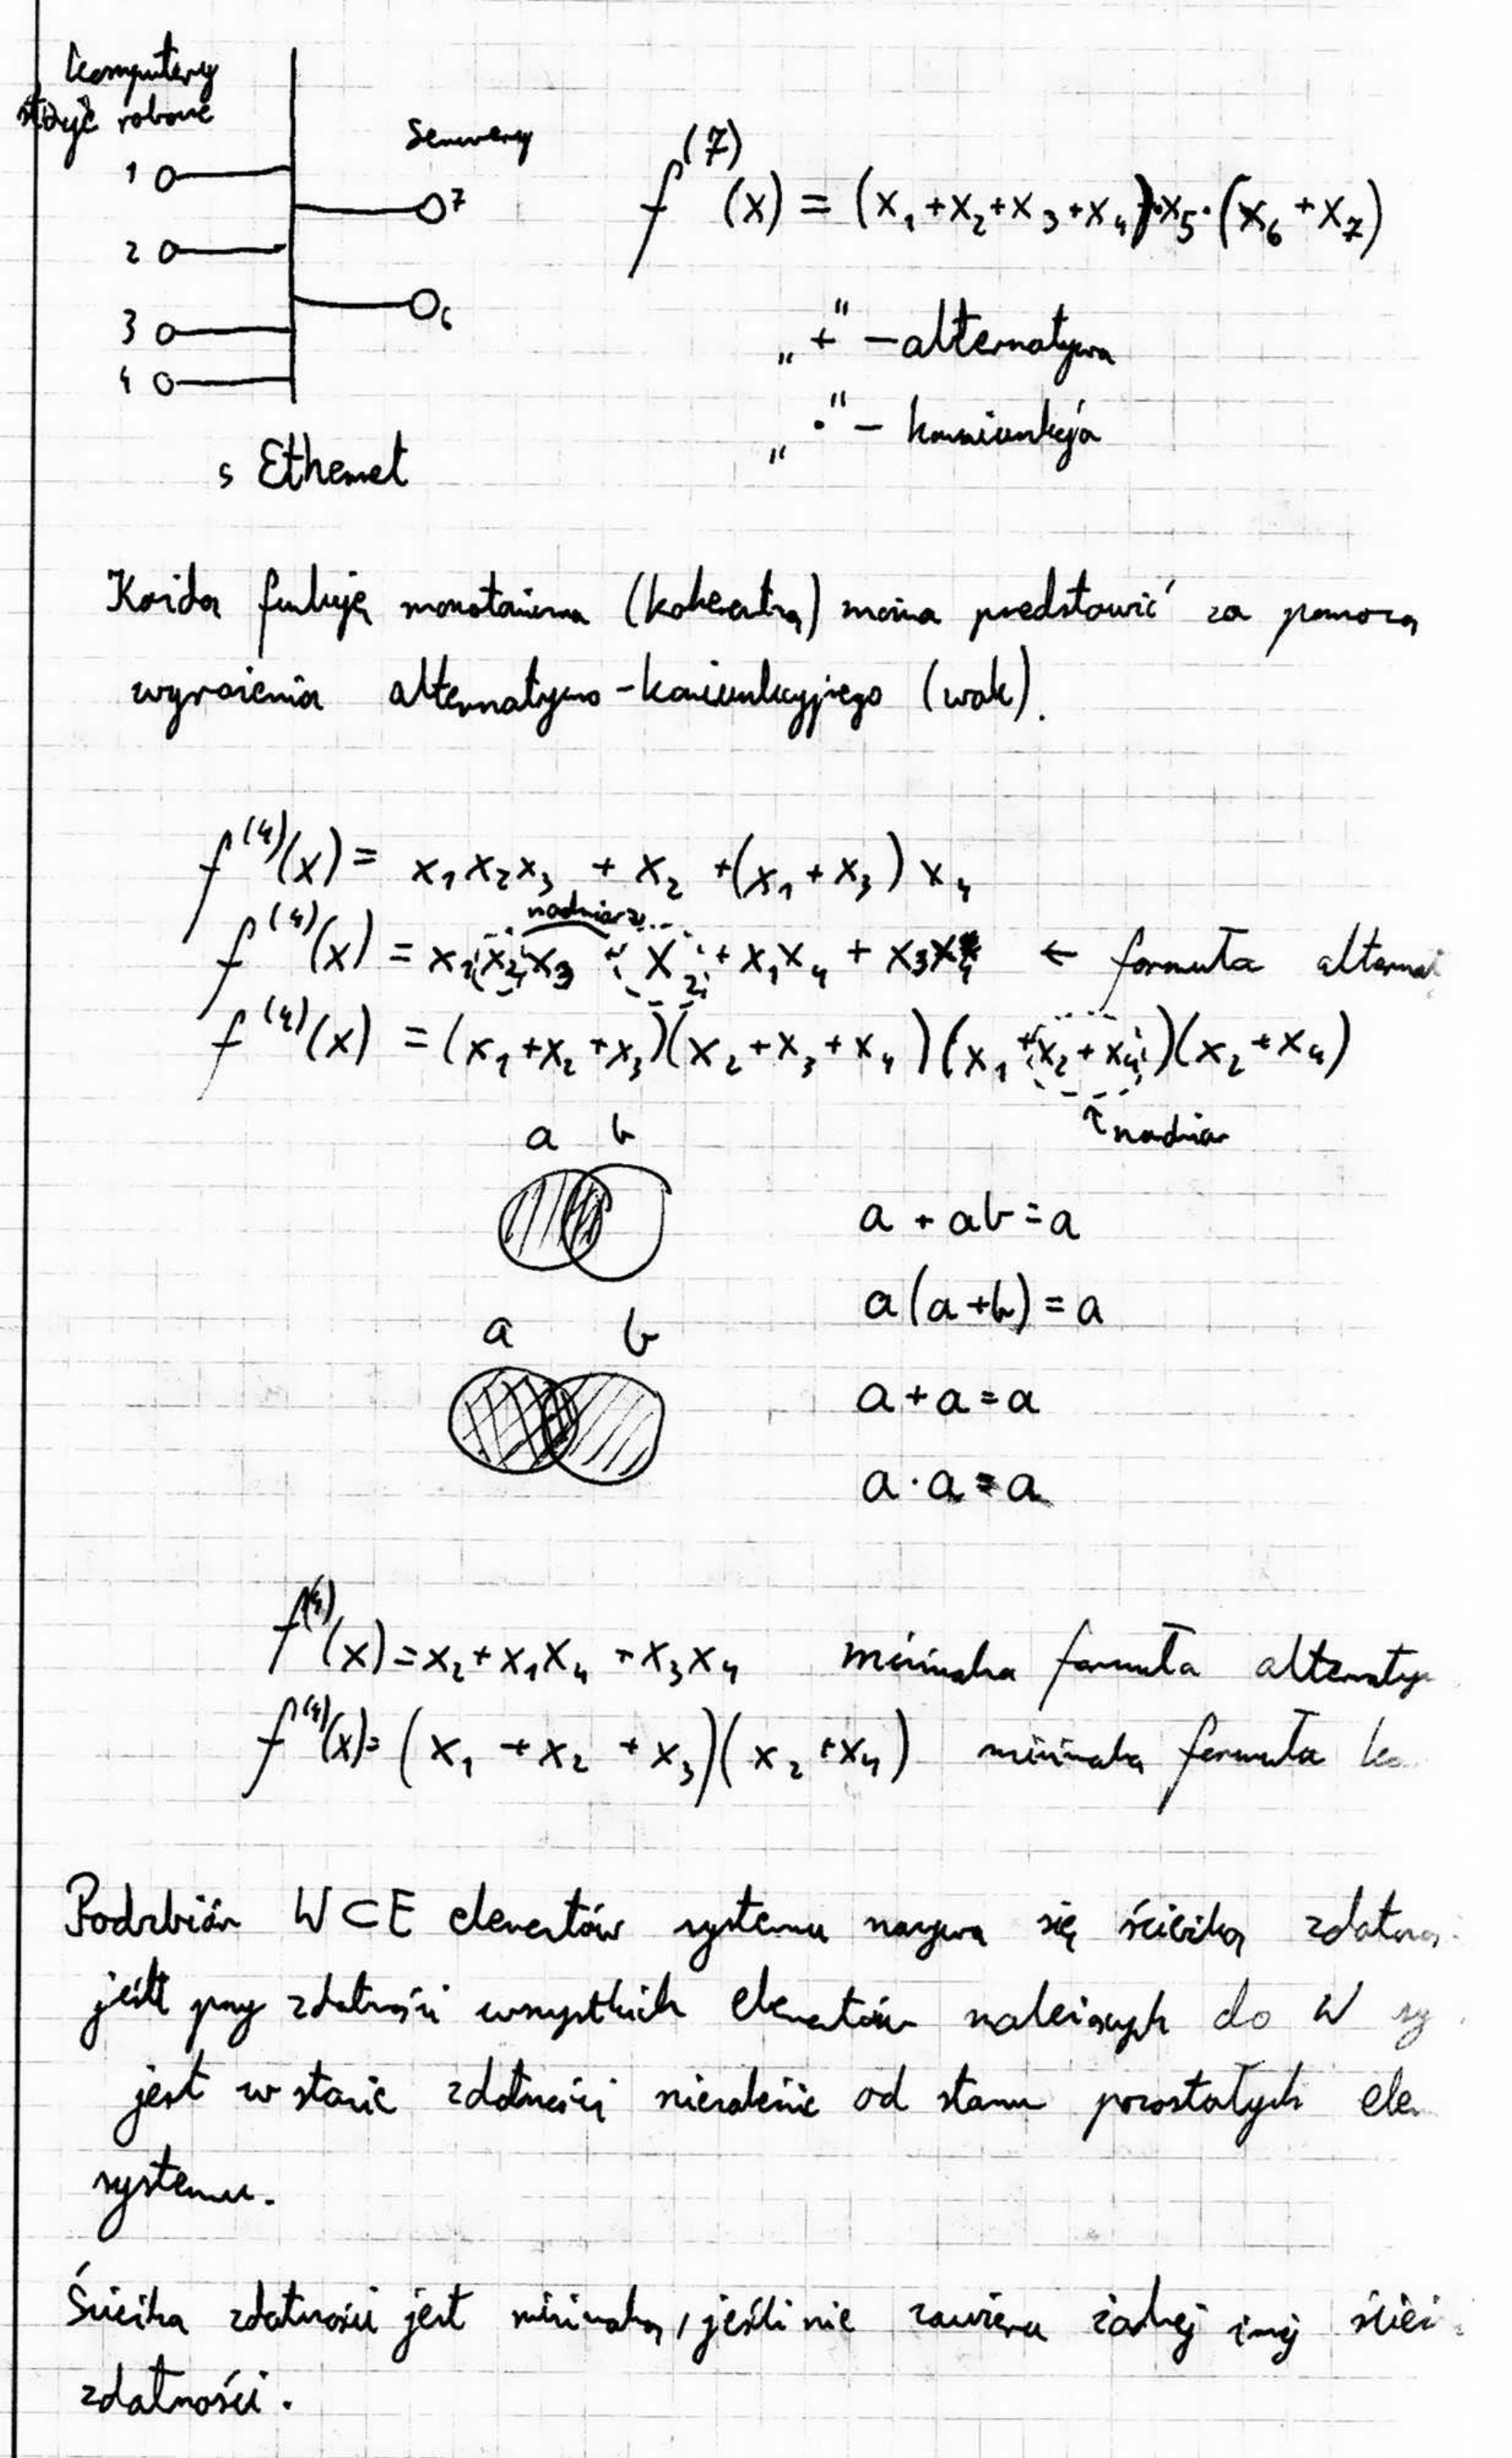 Komputery
stacje robocze
Serwery
1
7
2
6
3
4
5 Ethernet
f⁽⁷⁾(x) = (x₁+x₂+x₃+x₄)·x₅·(x₆+x₇)
„+" – alternatywa
„·" – koniunkcja
Każdą funkcję monotoniczną (koherentną) można przedstawić za pomocą
wyrażenia alternatywno-koniunkcyjnego (wak).
f⁽⁴⁾(x) = x₁x₂x₃ + x₂ + (x₁+x₃)x₄
f⁽⁴⁾(x) = x₁x₂x₃ + x₂ + x₁x₄ + x₃x₄ ← formuła
f⁽⁴⁾(x) = (x₁+x₂+x₃)(x₂+x₃+x₄)(x₁+x₂+x₄)(x₂+x₄)
↑ nadmiar
a b
a + ab = a
a(a+b) = a
a b
a + a = a
a · a = a
f⁽⁴⁾(x) = x₂ + x₁x₄ + x₃x₄ minimalna formuła
f⁽⁴⁾(x) = (x₁ + x₂ + x₃)(x₂ + x₄) minimalna formuła
Podzbiór W⊂E elementów systemu nazywa się ścieżką
jeśli przy zdatności wszystkich elementów należących do W
jest w stanie zdatności niezależnie od stanu pozostałych
systemu.
Ścieżka zdatności jest minimalna, jeśli nie zawiera żadnej innej
zdatności.